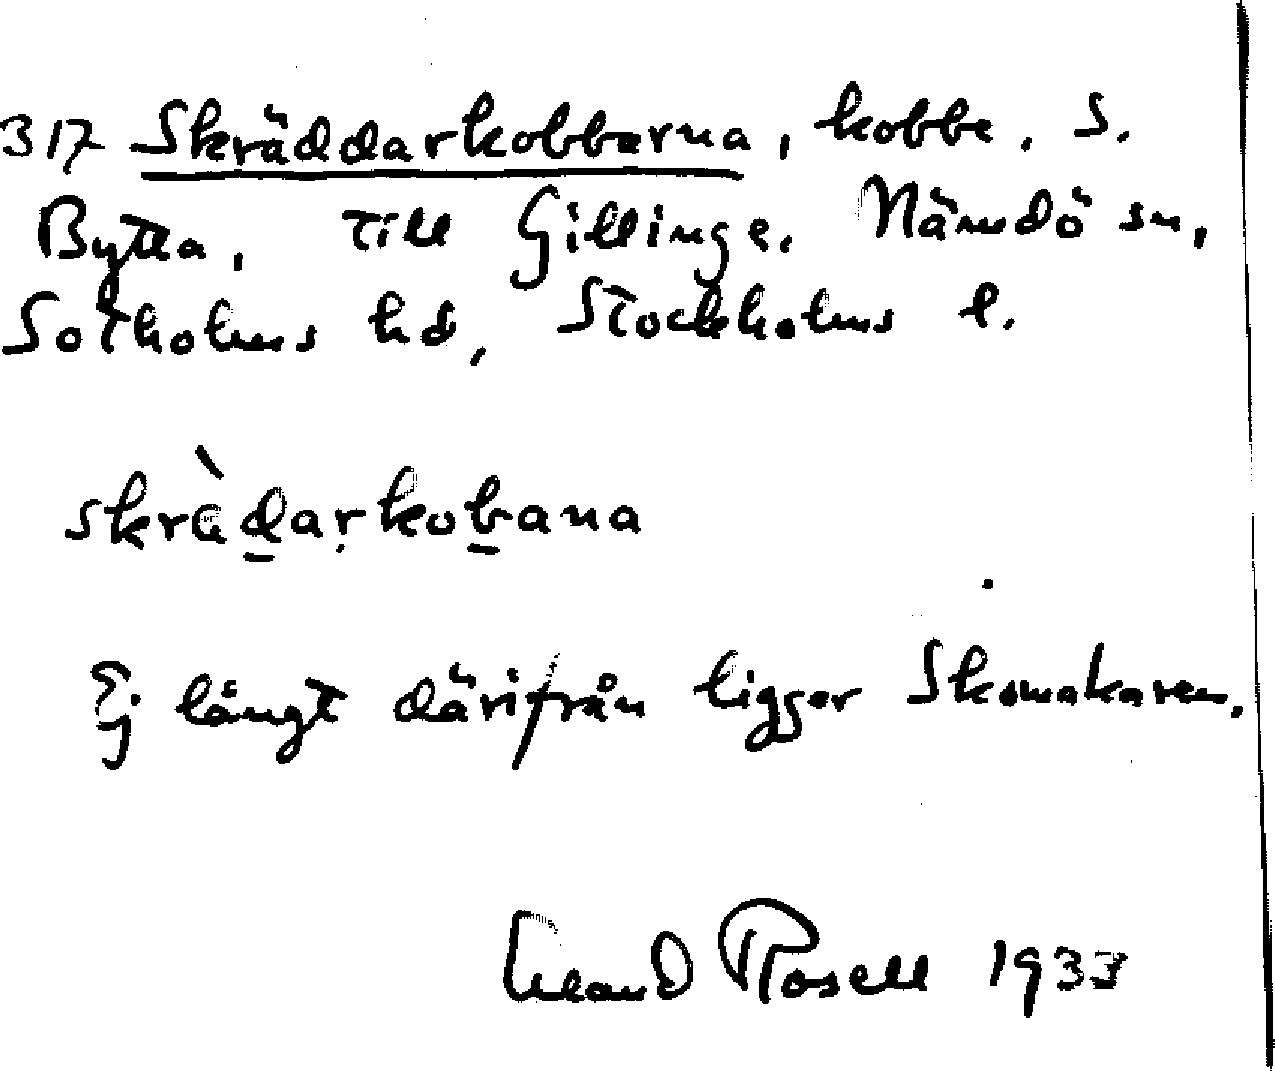 317 Skräddarkobbarna, kobbe. S.
Bytta, till Gillinge. Nämdö sn,
Sotholms hd, Stockholms l.
skrädarkobana
Ej långt därifrån ligger Skomakaren.
Rosell 1933